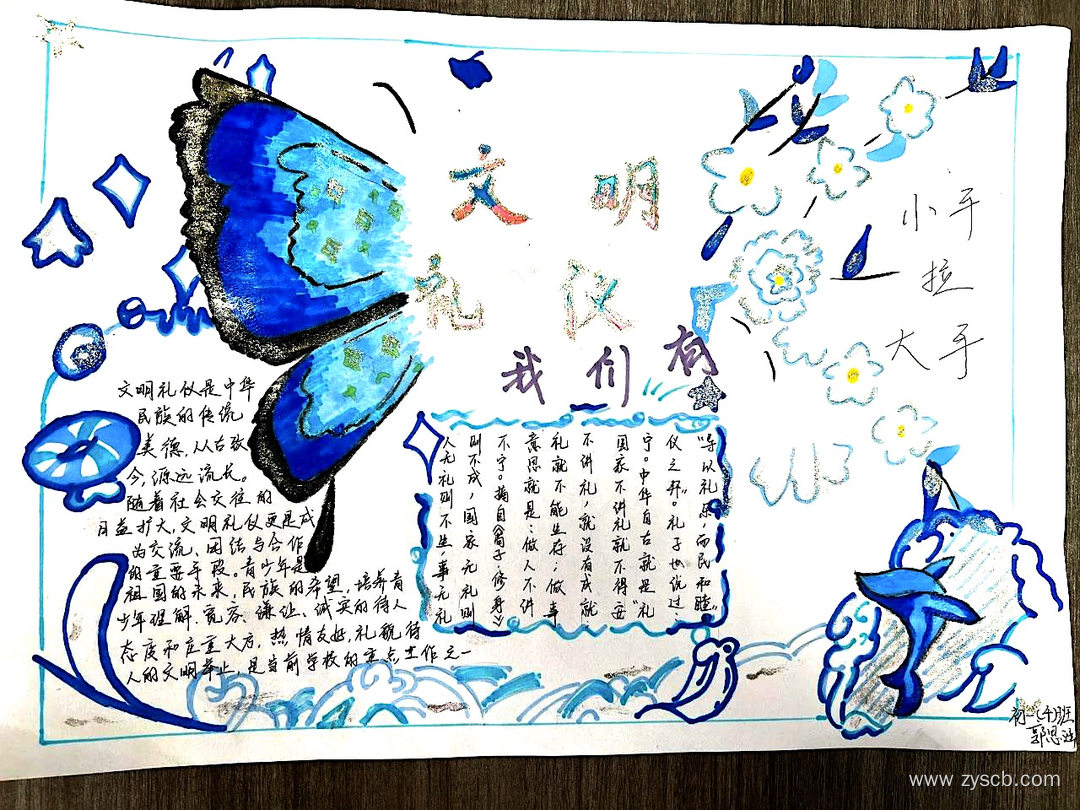 文明
礼仪
我们有
小手
拉
大手
文明礼仪是中华
民族的传统
美德，从古致
今，源远流长。
随着社会交往的
日益扩大，文明礼仪更是成
为交流、团结与合作
的重要手段。青少年是
祖国的未来，民族的希望，培养青
少年理解、宽容、谦让、诚实的待人
态度和庄重大方，热情友好，礼貌待
人的文明举止，是当前学校的重点工作之一
人无礼则不生，事无礼
则不成，国家无礼则
不宁。摘自《荀子·修身》
意思就是：做人不讲
礼就不能生存；做事
不讲礼，就没有成就
国家不讲礼就不得安
宁。中华自古就是“礼
仪之邦”。礼子也说过
“导以礼乐，而民和睦”
初一(4)班
郭思
www.zyscb.com